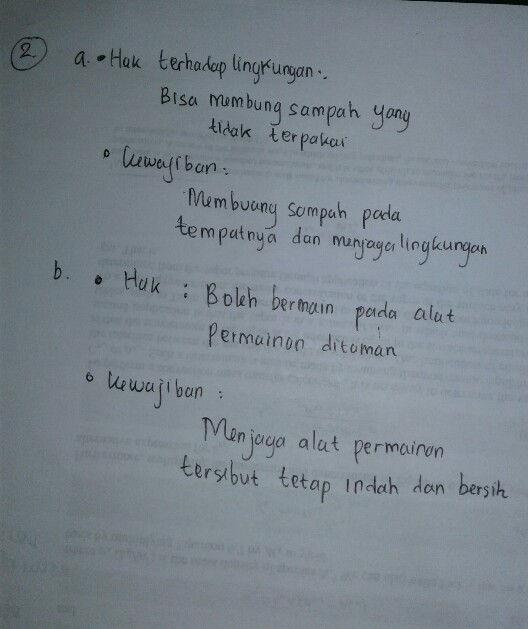 2. a. • Hak terhadap lingkungan :.
Bisa membung sampah yang
tidak terpakai
• Kewajiban :
Membuang sampah pada
tempatnya dan menjaga lingkungan
b. • Hak : Boleh bermain pada alat
Permainan ditaman
• Kewajiban :
Menjaga alat permainan
tersebut tetap indah dan bersih